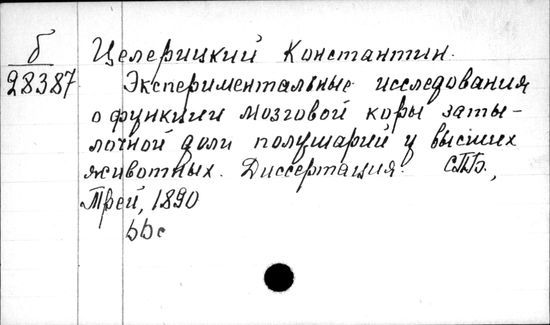 б Целерицкий Константин.
28387 Экспериментальные исследования
о функции мозговой коры заты-
лочной доли полушарий у высших
животных. Диссертация. СПБ.,
Трей, 1890
ььс